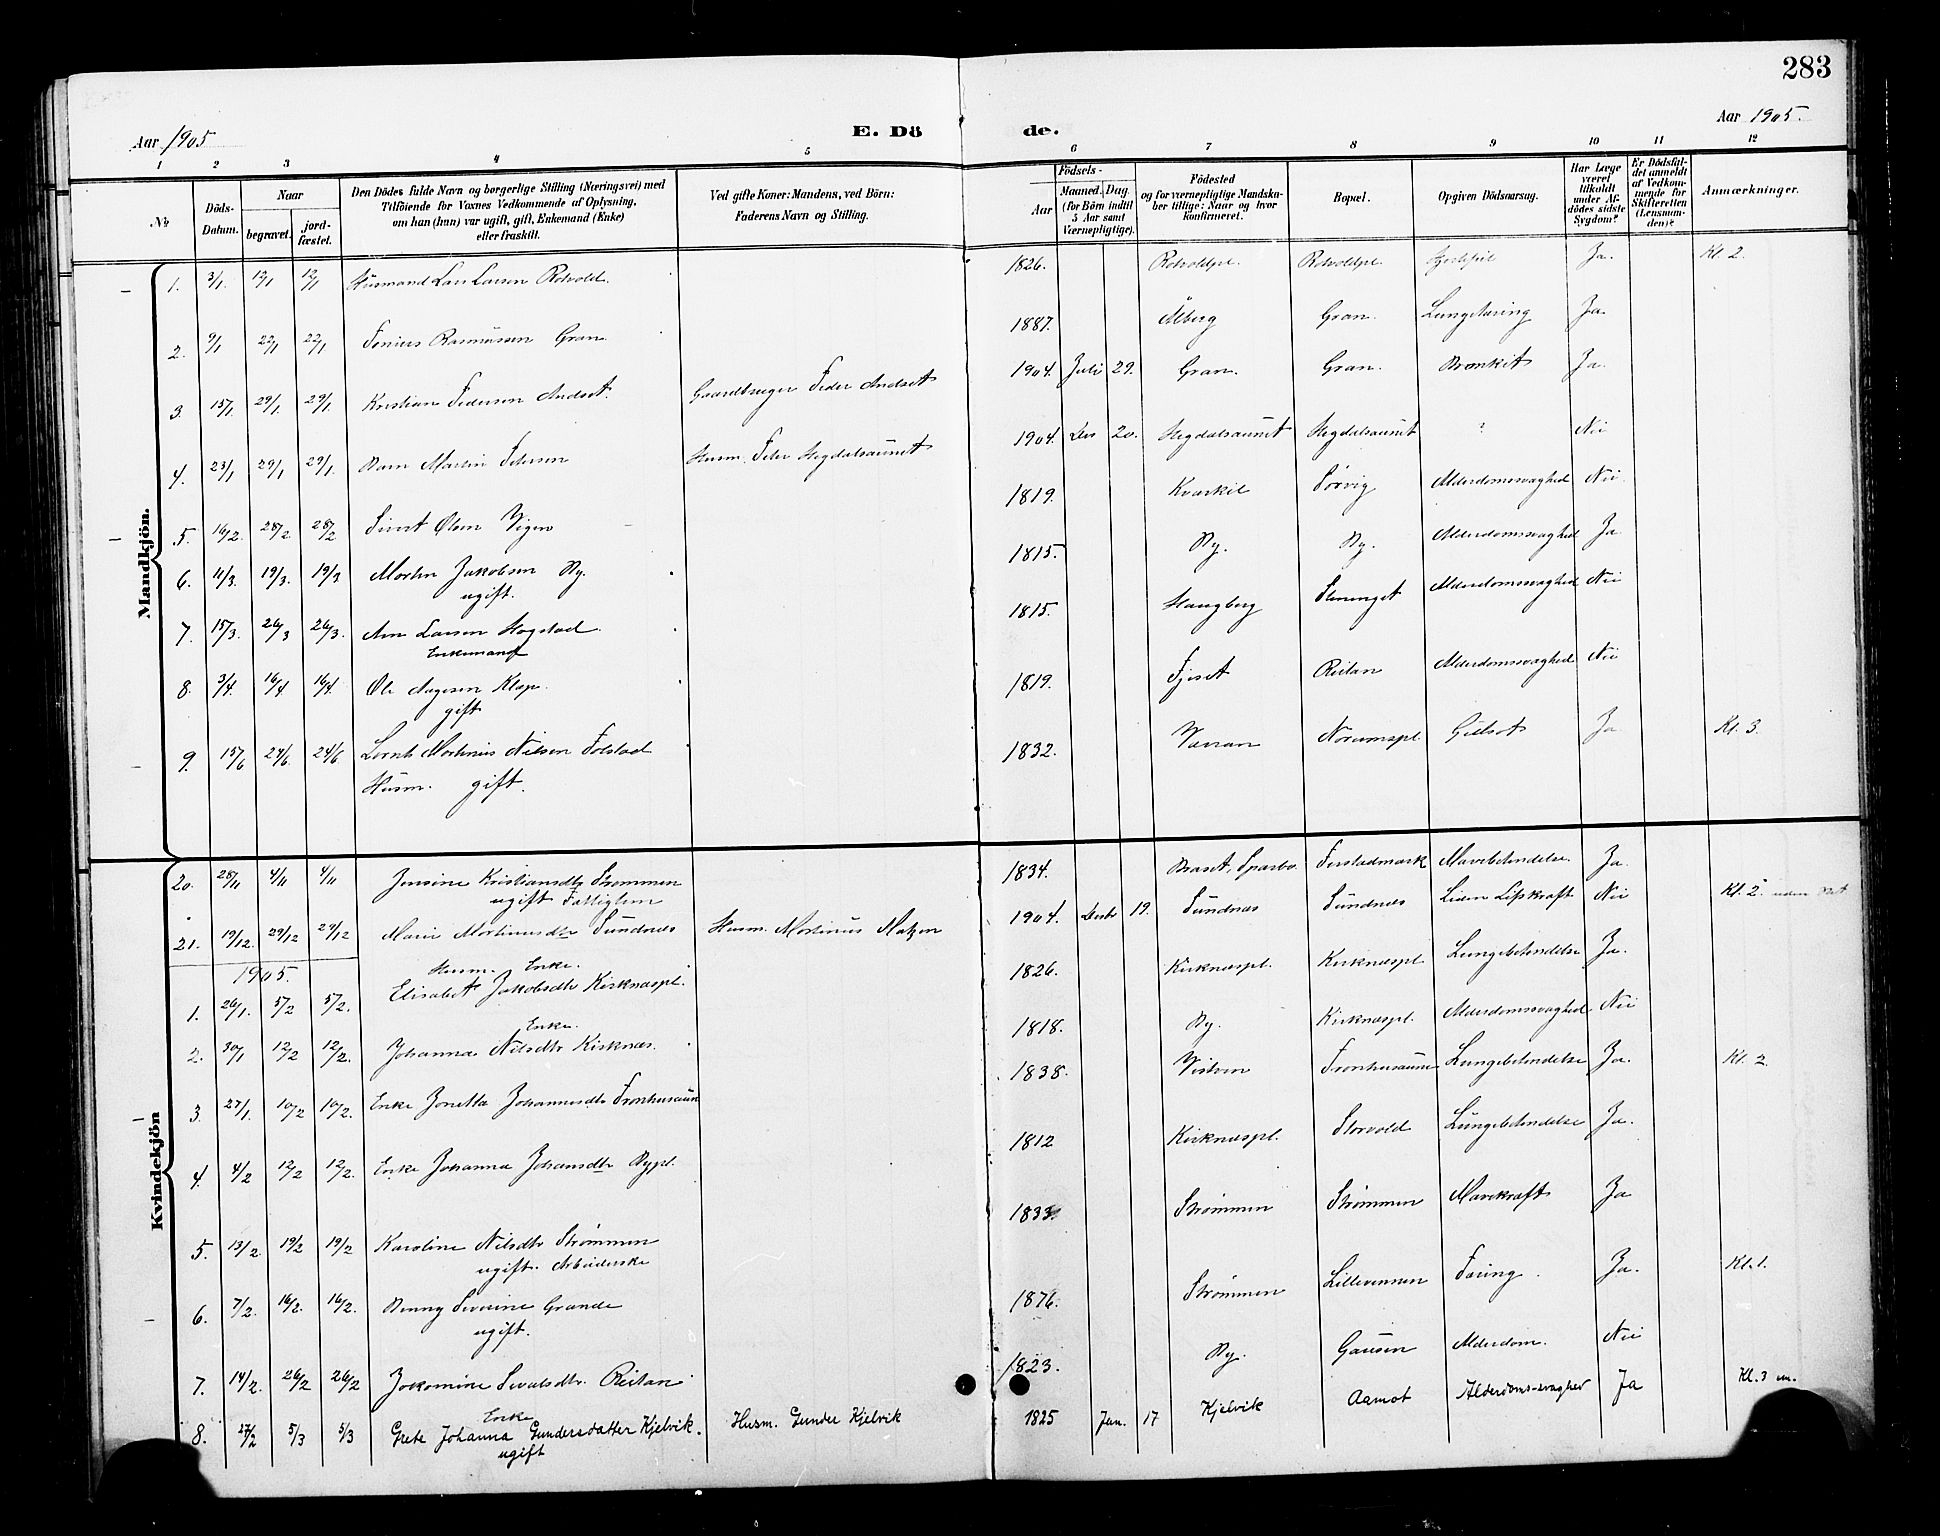 283
Aar 1905
E. Dö de.
Aar 1905.
1 2 3 4 5 6 7 8 9 10 11 12
No.
Döds-Datum.
Naar
begravet.
jord-fæstet.
Den Dödes fulde Navn og borgerlige Stilling (Næringsvei) med
Tilföiende for Voxnes Vedkommende af Oplysning,
om han (hun) var ugift, gift, Enkemand (Enke)
eller fraskilt.
Ved gifte Koner: Mandens, ved Börn:
Faderens Navn og Stilling.
Födsels-
Aar
Maaned. Dag.
(for Börn indtil
5 Aar samt
Værnepligtige).
Födested
og for værnepligtige Mandska-
ber tillige: Naar og hvor
konfirmeret.
Bopæl.
Opgiven Dödsaarsag.
Har Læge
været
tilkaldt
under Af-
dödes sidste
Sygdom?
Er Dödsfal-
det anmeldt
af Vedkom-
mende for
Skifteretten
(Lensman-
den)?
Anmærkninger.
Mandkjön.
1. 3/1. 12/1 12/1 Husmand Lars Larsen Rotvold. 1826. Rotvoldpl. Rotvoldpl. Ja. Kl. 2.
2. 9/1 22/1 22/1 Rasmussen Gran 1887. Aalberg Gran. Lungetæring Ja.
3. 15/1. 29/1. 29/1. Kristian Pedersen Andset. Gaardbruger Peder Andset 1904. Juli 29. Gran. Gran. Bronkit Ja.
4. 23/1 29/1 29/1. Barn Martin Petersen Husm. Peter Hegdalsaunet 1904. Des 20. Hegdalsaunet Hegdalsaunet ? Nei
5. 16/2. 28/2. 28/2 Sivert Olsen Vigen 1819. Kvarkil Sørvig Alderdomssvaghed Nei.
6. 11/3. 19/3. 19/3 Morten Jakobsen By. 1815. By. By. Alderdomssvaghed Ja
ugift.
7. 15/3. 26/3 26/3. Arn Larsen Hogstad. 1815. Haugberg Alderdomssvaghed Nei
Enkemand
8. 3/4. 16/4 16/4. Ole Aagesen Klop. 1819. Fjeset Reitan Alderdomssvaghed Nei
gift
9. 15/6 24/6. 24/6 Lornts Martinus Nilsen Folstad 1832. Vanran Norumspl. Gulsot Ja Kl. 3.
Husm. gift.
Kvindekjön
20. 28/11 4/11 4/11 Jensine Kristiansdtr Strømmen 1834. Braset, Sparbo. Mavebetendelse. Ja.
ugift Fattiglem
21. 19/12. 29/12 29/12 Marie Martinusdtr Sundnes Husm. Martinus Matzen 1904. Desbr 19. Sundnæs Sundnæs Liden Lifskraft Nei Kl. 2. uden
1905. Husm. Enke.
1. 26/1. 5/2 5/2. Elisabet Jakobsdtr Kirknæspl. 1826. Kirknæspl. Kirknæspl. Lungebetendelse Ja.
Enke.
2. 30/1 12/2 12/2. Johanna Nilsdtr Kirknæs. 1818. By. Kirknæspl. Alderdomssvaghed. Nei
3. 27/1. 10/2 10/2. Enke Jonetta Johannesdtr Fronhusaun 1838. Vistven Fronhusaune Lungebetendelse Ja. Kl. 2.
4. 4/2 12/2 12/2. Enke Johanna Johansdtr Bypl. 1812 Kirknæspl. Storvold Lungebetendelse Ja.
5. 13/2. 19/2 19/2 Karoline Nilsdtr Strømmen 1833. Strømmen Strømmen Mavekræft Ja
ugift. Arbeiderske
6. 7/2. 16/2. 16/2. Benny Severine Grande 1876. Strømmen Lillevennen Tæring. Ja. Kl. 1.
ugift.
7. 14/2. 26/2 26/2 Jokomine Sivatsdtr. Reitan 1823. By. Gausen Alderdom. Nei
Enke
8. 27/2 5/3 5/3 Grete Johanna Gundersdatter Kjelvik. Husm. Gunder Kjelvik 1825 Jan. 17 Kjelvik Aamot Alderdoms-svaghed Ja Kl. 3 un.
ugift